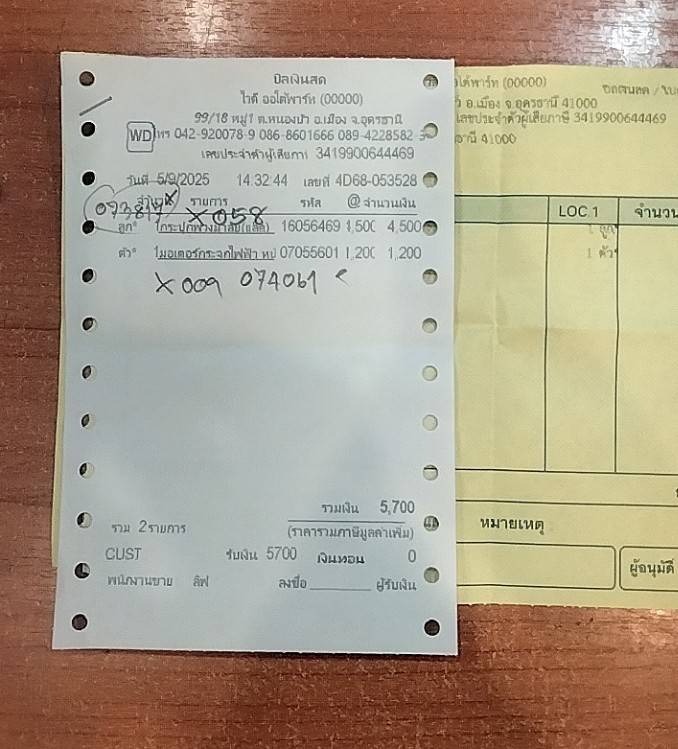 บิลเงินสด
ไวดี ออโต้พาร์ท (00000)
99/18 หมู่1 ต.หนองบัว อ.เมือง จ.อุดรธานี
WD โทร 042-920078-9 086-8601666 089-4228582-3
เลขประจำตัวผู้เสียภาษี 3419900644469
วันที่ 5/9/2025 14:32:44 เลขที่ 4D68-053528
จำนวน รายการ รหัส @ จำนวนเงิน
X058
ลูก 16056469 1,500 4,500
ตัว 1 มอเตอร์กระจกไฟฟ้า 07055601 1,200 1,200
X009 074061
รวมเงิน 5,700
รวม 2 รายการ (ราคารวมภาษีมูลค่าเพิ่ม)
CUST รับเงิน 5700 เงินทอน 0
พนักงานขาย ลงชื่อ ผู้รับเงิน
พาร์ท (00000)
อ.เมือง จ.อุดรธานี 41000
เลขประจำตัวผู้เสียภาษี 3419900644469
41000
LOC.1 จำนวน
1 ลูก
1 ตัว
หมายเหตุ
ผู้อนุมัติ